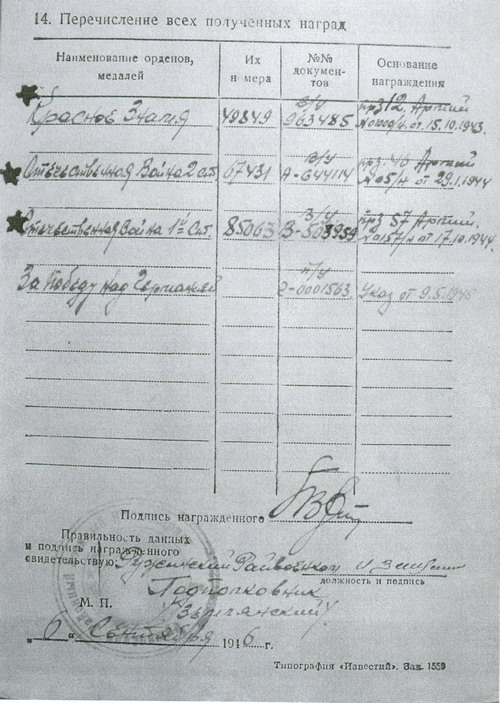 14. Перечисление всех полученных наград
Наименование орденов, медалей
Их н мера
№№ документов
Основание награждения
Красное Знамя 49849 в/у 963485 прз 12 Армии от 15.10.1943.
Отечественная Война 2 ст. 67431 в/у А-644114 прз. 46 Армии №05/н от 29.1.1944
Отечественная Война 1й Ст. 85063 В/у В-508959 прз 57 Армии №0157/н от 17.10.1944
За Победу над Германией п/у 2-0001563. Указ от 9.5.1945
Подпись награжденного
Правильность данных
и подпись награжденного
свидетельствую: Райвоенком
должность и подпись
Подполковник
М. П.
„ 6 " Сентября 1946 г.
Типография «Известий». Зак. 1559